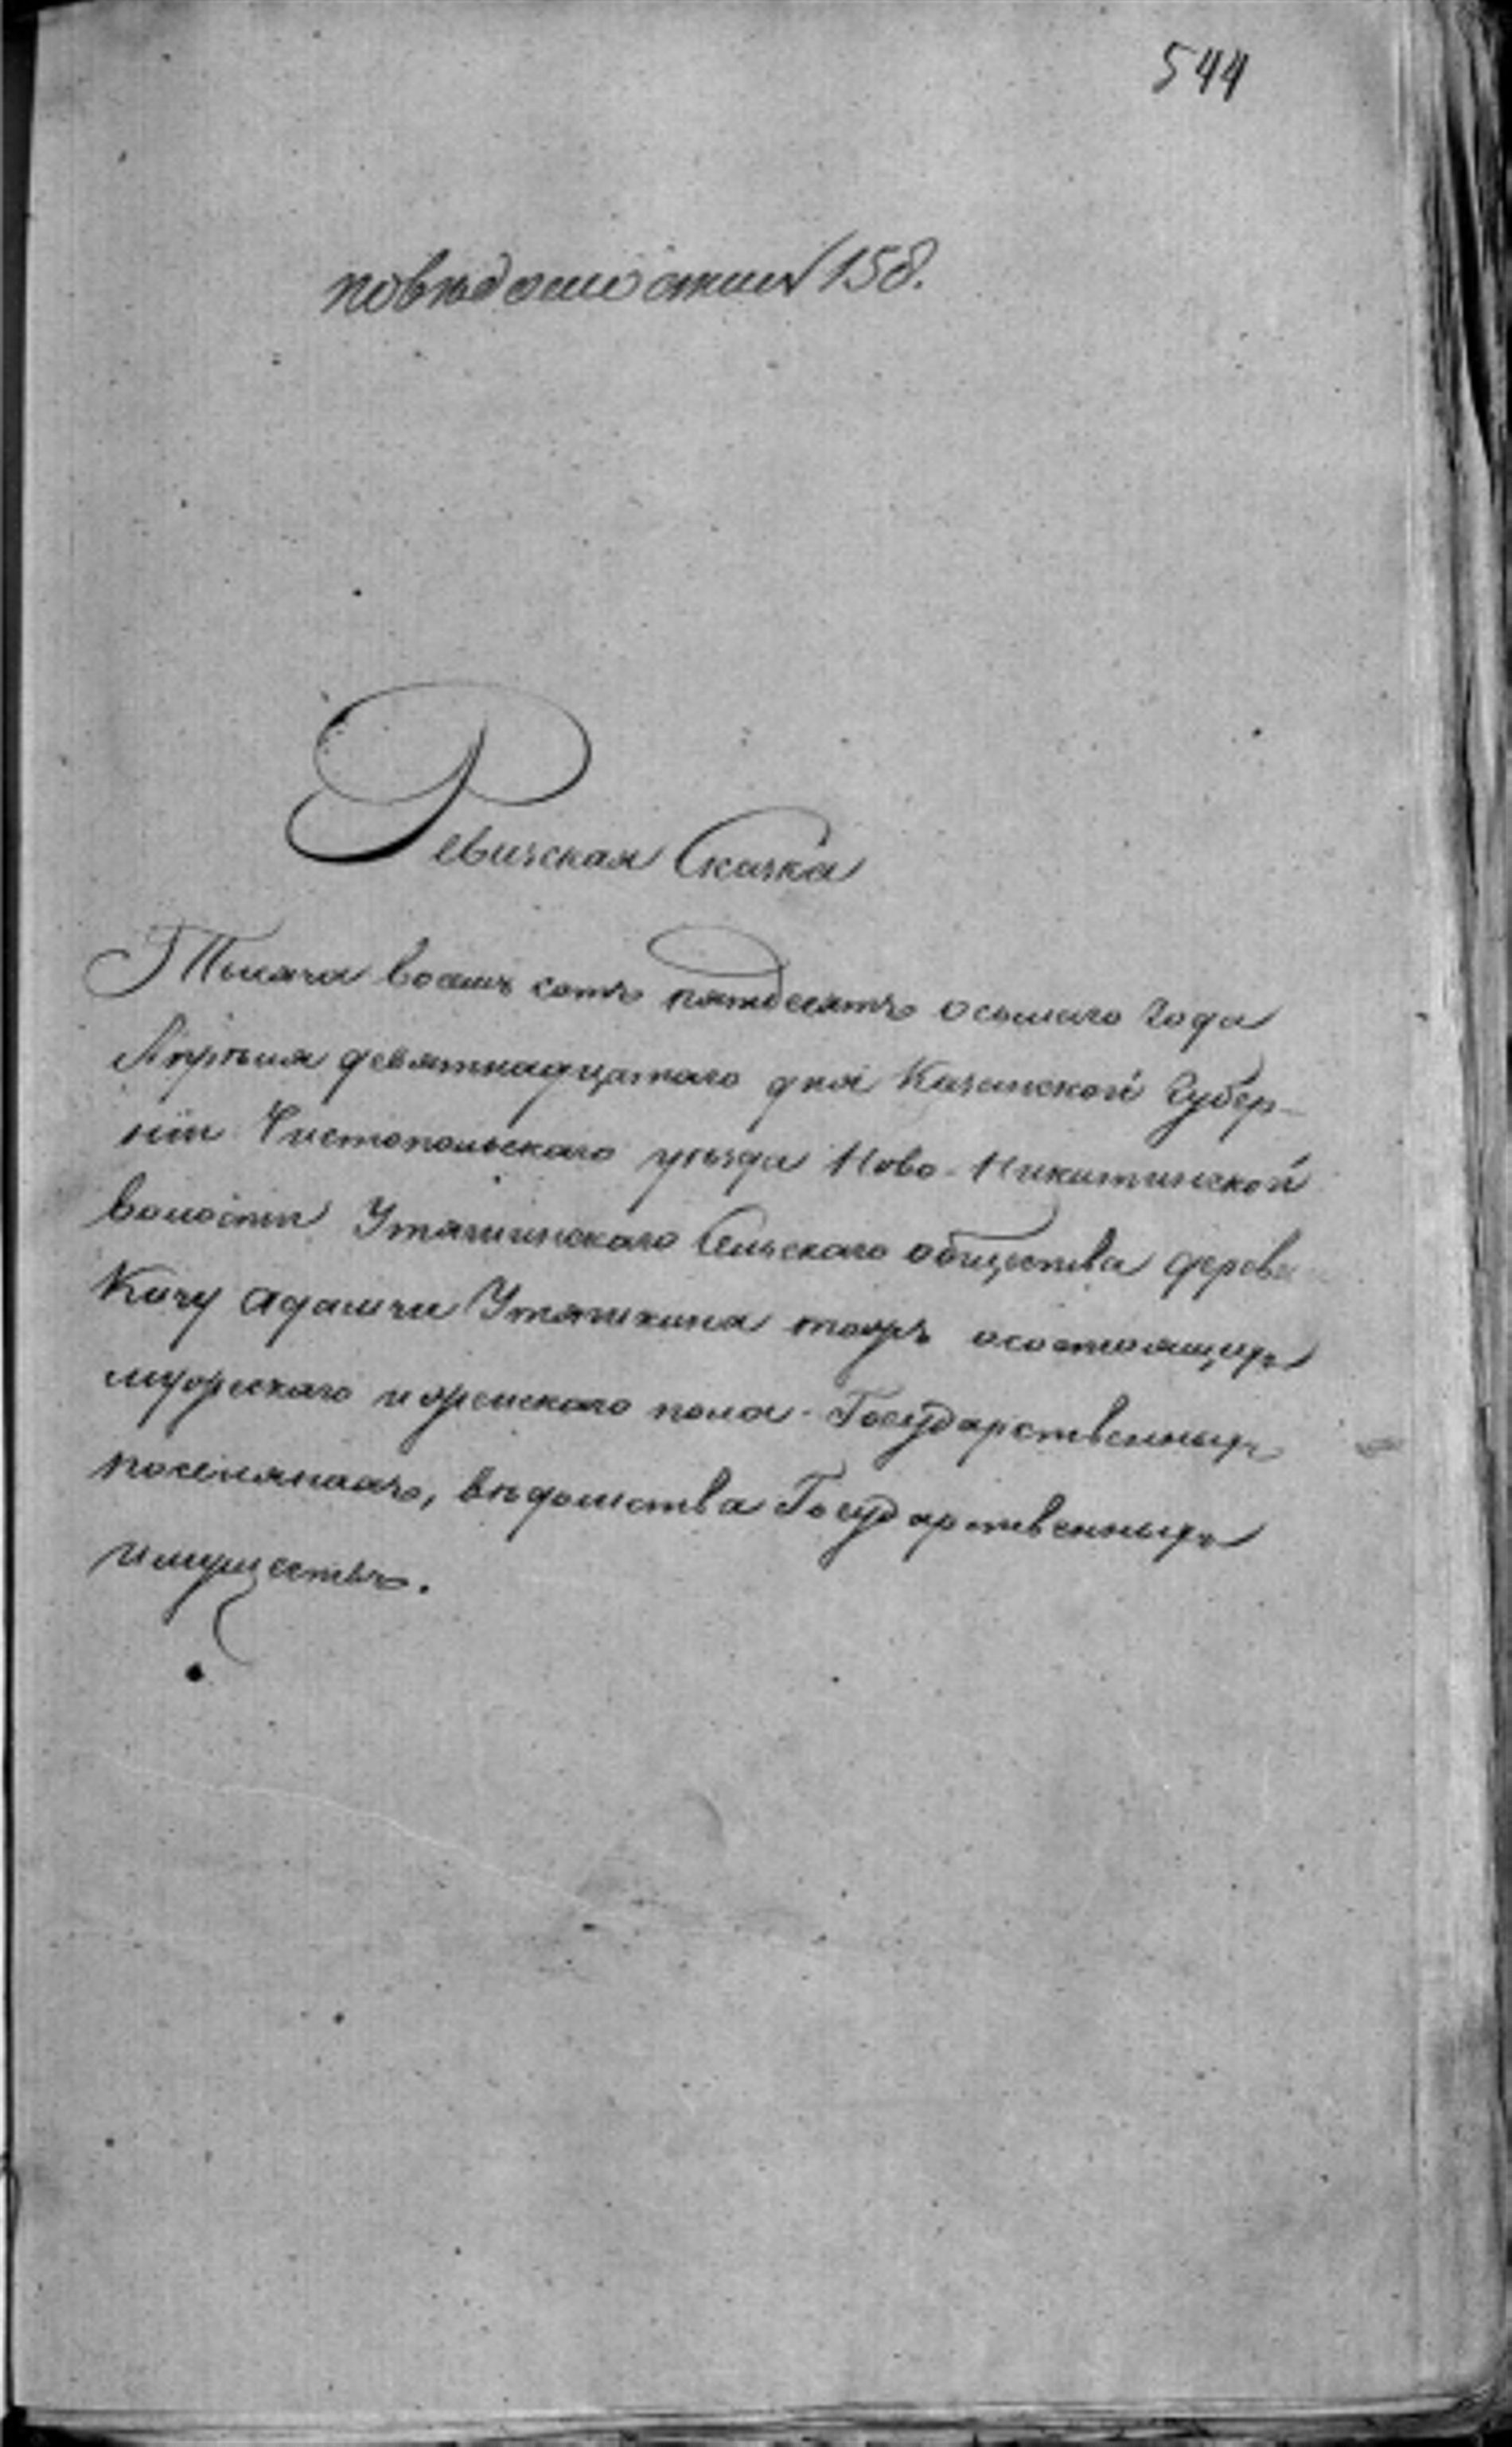 544
по вѣдомости 158.
Ревизская Сказка
Тысяча восемь сотъ пятдесятъ осьмаго года
Апрѣля девятнадцатаго дня Казанской Губер-
ніи Чистопольскаго уѣзда Ново-Никитинской
волости Утяшинскаго Сельскаго общества дерев
Кичу Адамчи Утяшкина тожъ о состоящихъ
мужескаго и женскаго пола Государственныхъ
поселянахъ, вѣдомства Государственныхъ
имуществъ.